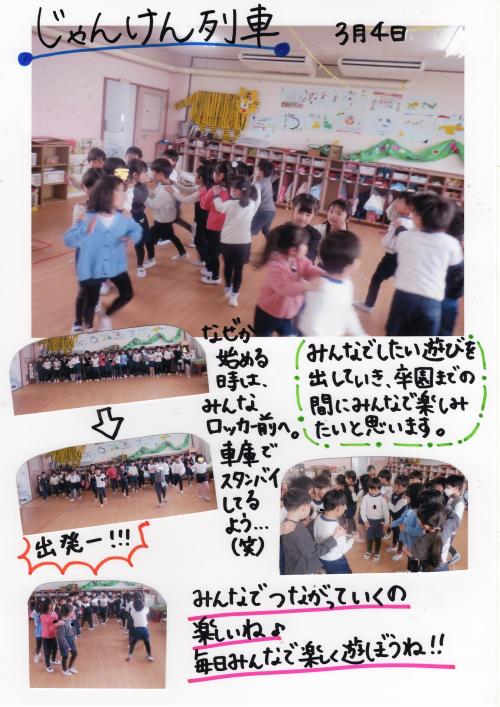 じゃんけん列車
3月4日
なぜか
始める
時は、
みんな
ロッカー前へ。
車庫で
スタンバイ
してる
よう…
(笑)
みんなでしたい遊びを
出していき、卒園までの
間にみんなで楽しみ
たいと思います。
出発ー!!!
みんなでつながっていくの
楽しいね♪
毎日みんなで楽しく遊ぼうね!!